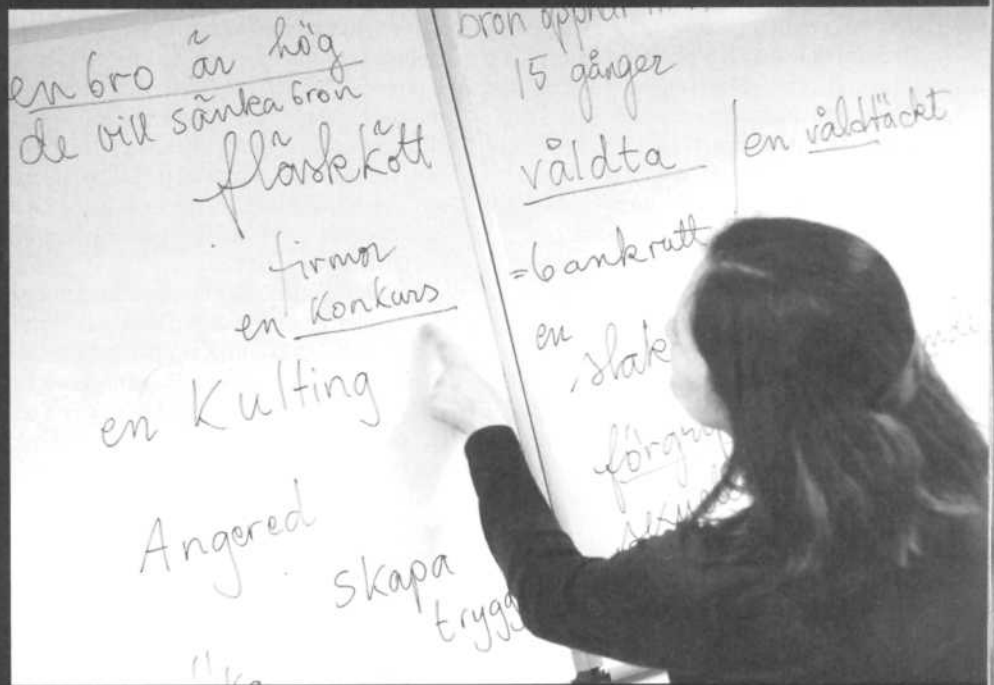 en bro är hög
de vill sänka bron
fläskkött
firmor
en konkurs
en Kulting
Angered
skapa
trygg
bron öppnar
15 gånger
våldta
en våldtäckt
= bankrutt
en